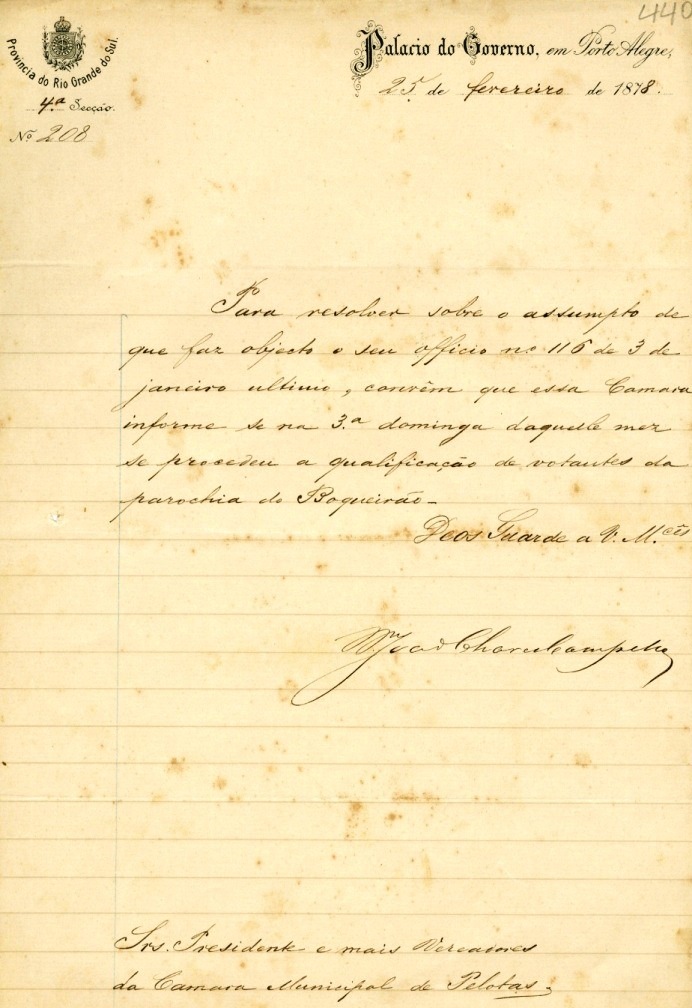 440
Provincia do Rio Grande do Sul.
4.ª Secção.
Nº 208
Palacio do Governo, em Porto Alegre,
25 de fevereiro de 1878.
Para resolver sobre o assumpto de
que faz objecto o seu officio nº 116 de 3 de
janeiro ultimo, convêm que essa Camara
informe se na 3.ª dominga daquelle mez
se procedeu a qualificação de votantes da
parochia do Boqueirão_
Deos Guarde a V. M.cês
Srs. Presidente e mais Vereadores
da Camara Municipal de Pelotas.